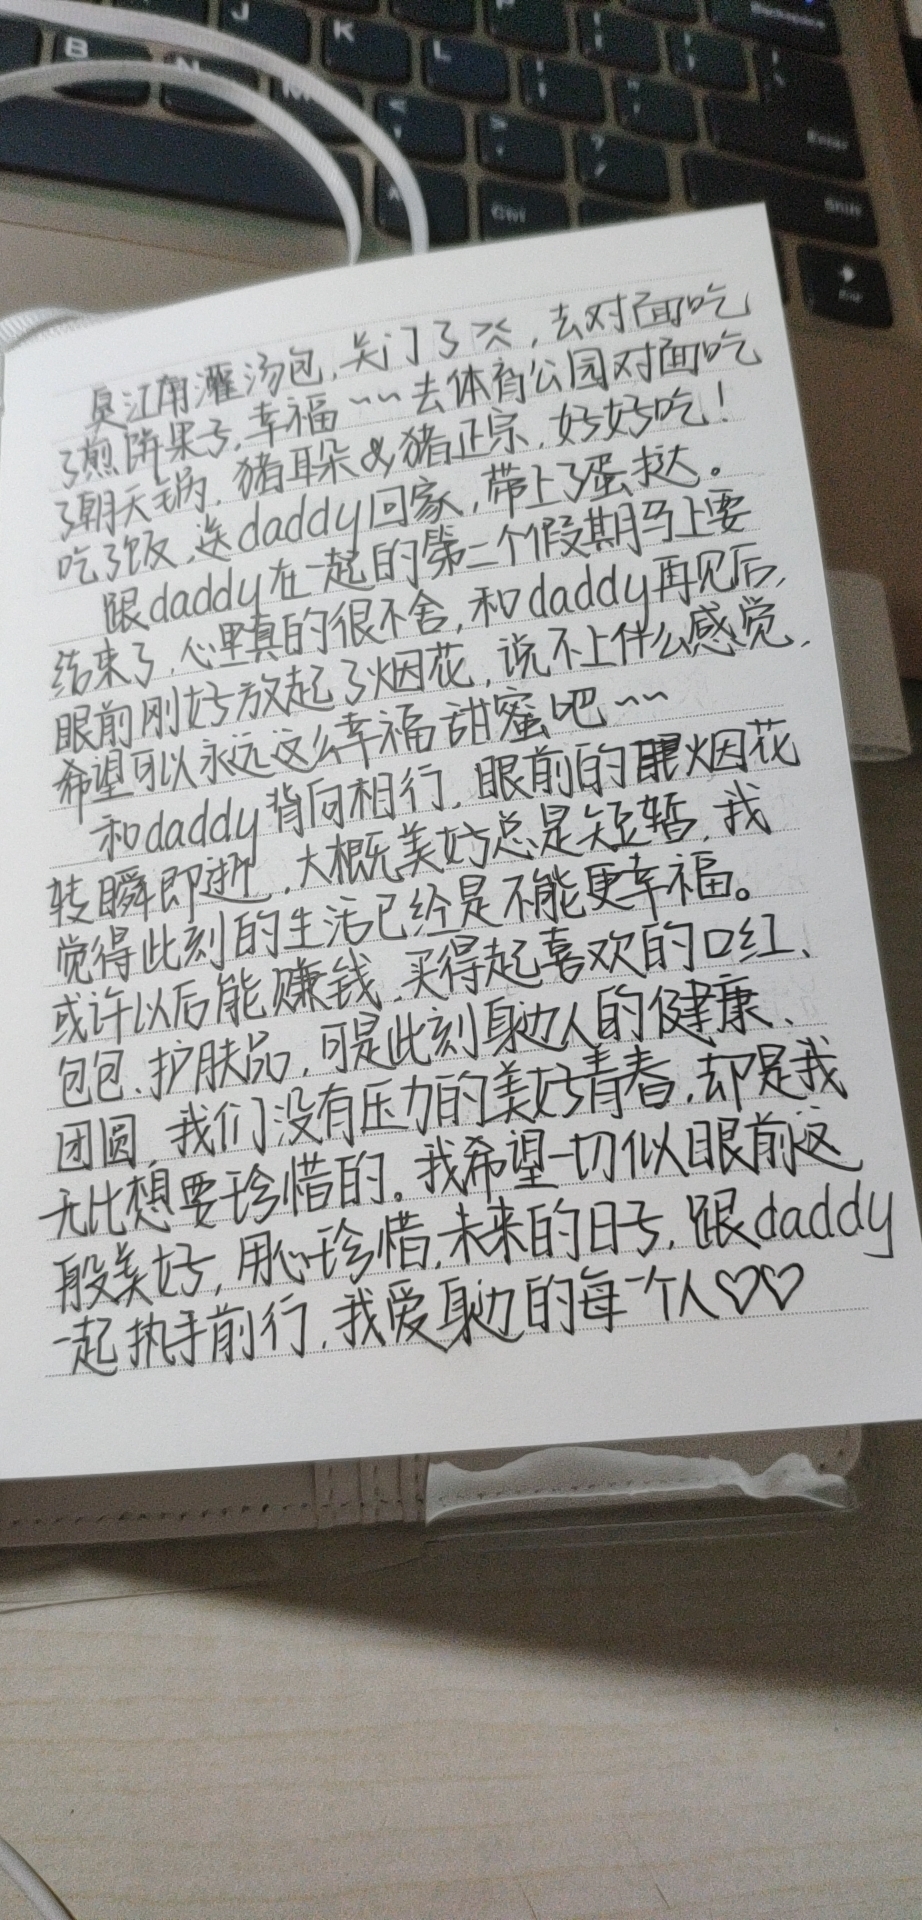 J
K
L
B
N
M
Backspace
Enter
Shift
Ctrl
End
江南灌汤包,关门了><,去对面吃
了煎饼果子,幸福~~去体育公园对面吃
了朝天锅,猪耳朵&猪正宗,好好吃!
吃了饭,送daddy回家,带上了蛋挞。
跟daddy在一起的第二个假期马上要
结束了,心里真的很不舍,和daddy再见后,
眼前刚好放起了烟花,说不上什么感觉,
希望可以永远这么幸福甜蜜吧~~
和daddy背向相行,眼前的烟花
转瞬即逝,大概美好总是短暂,我
觉得此刻的生活已经是不能更幸福。
或许以后能赚钱,买得起喜欢的口红、
包包、护肤品,可是此刻身边人的健康、
团圆,我们没有压力的美好青春,却是我
无比想要珍惜的。我希望一切似眼前这
般美好,用心珍惜,未来的日子,跟daddy
一起执手前行,我爱身边的每个人♡♡